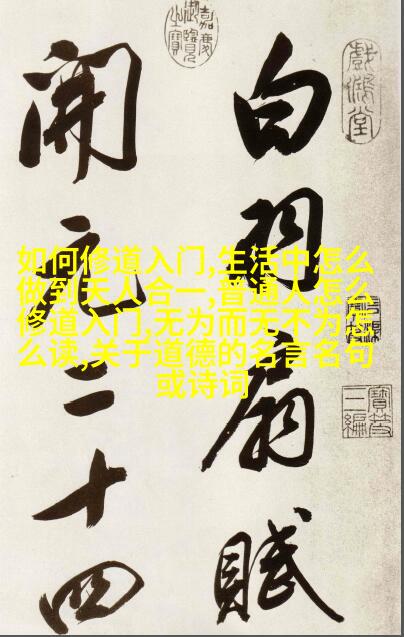 白羽扇賦
開元二十四
如何修道入门,生活中怎么
做到天人合一,普通人怎么
修道入门,无为而无不为怎
么读,关于道德的名言名句
或诗词
戲鴻堂
嘉慶御覽之寶